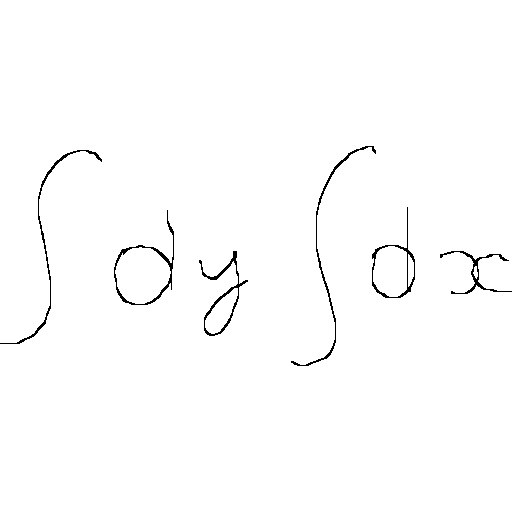 ∫dy∫dx